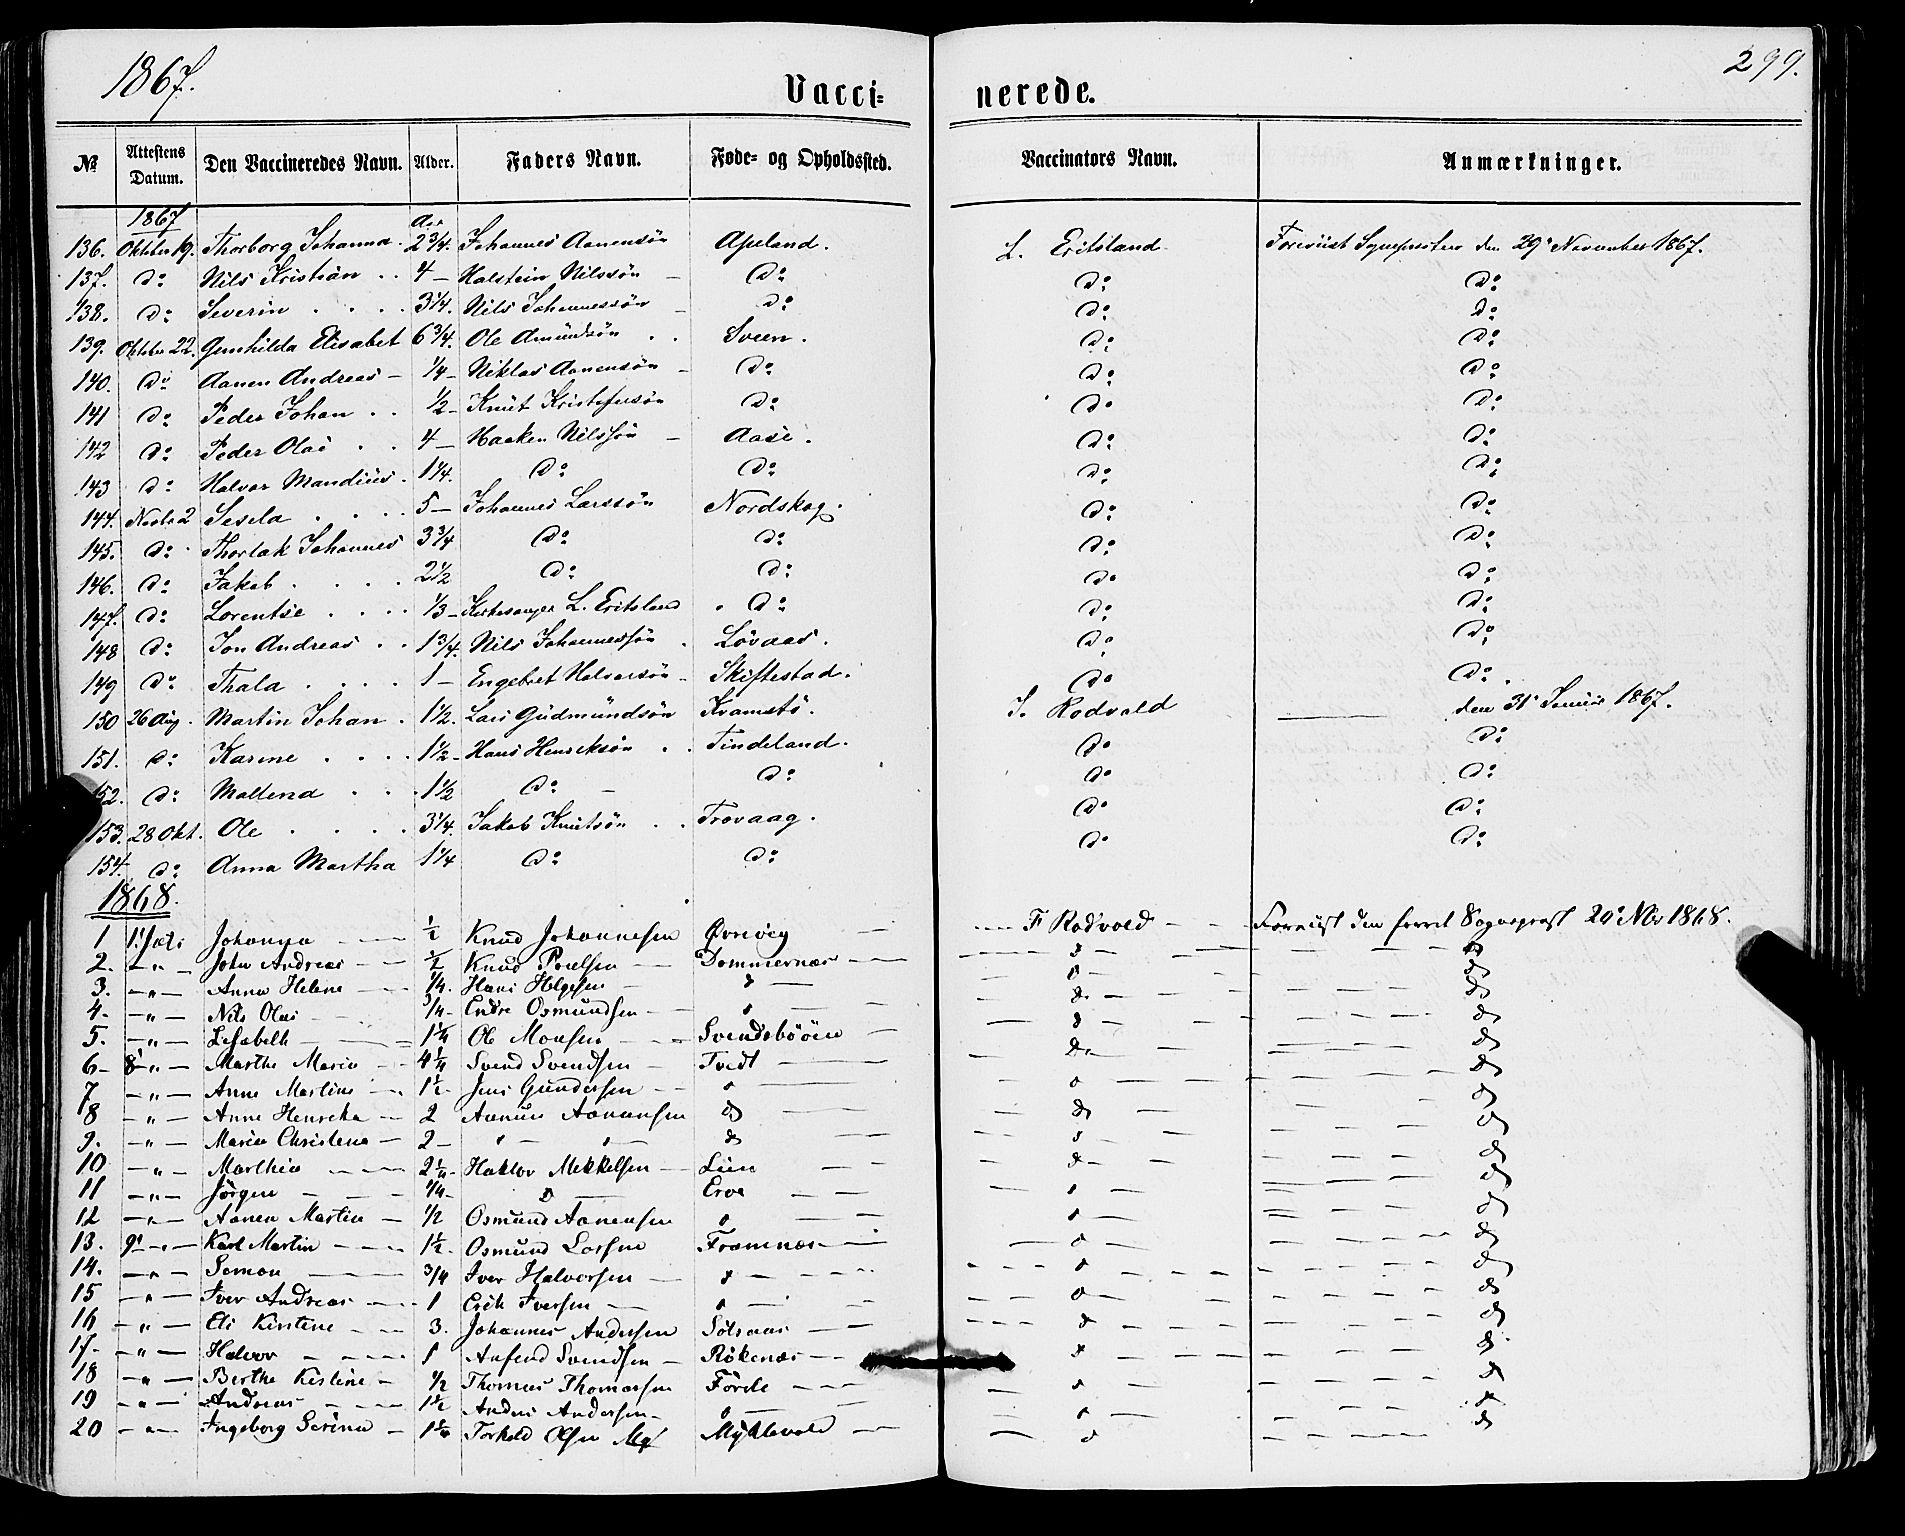 1867.
299.
Vacci= nerede.
№ Attestens Datum. Den Vaccineredes Navn. Alder. Faders Navn. Føde= og Opholdssted. Vaccinators Navn. Anmærkninger.
1867 Aar
136. Oktober 19. Thorborg Johanna 2 3/4. Johannes Aanensön Apeland. L. Eritsland Foreviist Sognepresten den 29de November 1867.
137. do Nils Kristian 4 Halstein Nilssön do do do
138. do Severin 3 1/4. Nils Johannessön do do do
139. Oktober 22. Gunhilda Elisabet 6 3/4. Ole Amundsön Sveen. do do
140. do Aanen Andreas 1/4 Niklas Aanensön do do do
141 do Peder Johan 1/2 Knut Kristofersön do do do
142 do Peder Olai 4 Haaken Nilssön Aase. do do
143 do Halvor Mandius 1 1/4. do do do do
144. Novbr 2 Sesela 5 Johannes Larssön Nordskog. do do
145. do Thorlak Johannes 3 3/4 do do do do
146. do Jakob 2 1/2 do do do do
147. do Lorentse 1/3 Kirkesanger L. Eritsland do do do
148 do Jon Andreas 1 3/4. Nils Johannessön Lövaas. do do
149 do Thala 1 Engebret Halvorsön Skiftestad. do do
150 26 Aug. Martin Johan 1 1/2. Lars Gudmundsön Kramstö. J. Rodvold den 31te 1867.
151. do Karine 1 1/2 Hans Henriksön Tindeland. do do
152. do Mallena 1 1/2 do do do do
153. 28 Okt. Ole 3 1/4. Jakob Knutsön Trovaag. do do
154. do Anna Martha 1 1/4 do do do do
1868.
1 1 Johanna 1/2 Knud Johannesen Øvrevig F Rodvold Foreviist den Sogneprest 20de Nov 1868.
2. " John Andreas 1/2 Knud Poulsen Dommernæs do do
3. " Anna Helene 1/4. Hans Helgesen do do do
4. " Nils Olai 3/4 Endre Osmundsen do do do
5. " Lisabeth 1 1/4 Ole Monsen Svendsbøöen do do
6 8 " Marthe Maria 4 1/4 Svend Svendsen Tvedt do do
7 " Anne Martine 1 1/2 Jens Gundersen do do do
8 " Anne Henrikke 2 Aanun Aanensen do do do
9. " Maria Christena 2 " " do do do
10 " Marthea 2 1/4 Haldor Mikkelsen Lien do do
11 " Jörgen 1/4 do Erve do do
12 " Aanen Martin 1/2 Osmund Aanensen do do do
13. 9 " Karl Martin 1 1/2 Osmund Larsen Framnæs do do
14. " Semon 3/4 Iver Halvorsen do do do
15 " Iver Andreas 1 Erik Iversen do do do
16 " Eli Kirstine 3. Johannes Andersen Solvaas do do
17 " Halvor 1 Amund Svendsen Rökenæs do do
18 " Berthe Kistine 1/2 Thomas Thomassen Förde do do
19 " Andreas 1 1/2 Anders Andersen do do do
20 " Ingeborg Serina 1 1/4 Torkeld Olsen Myklevold do do